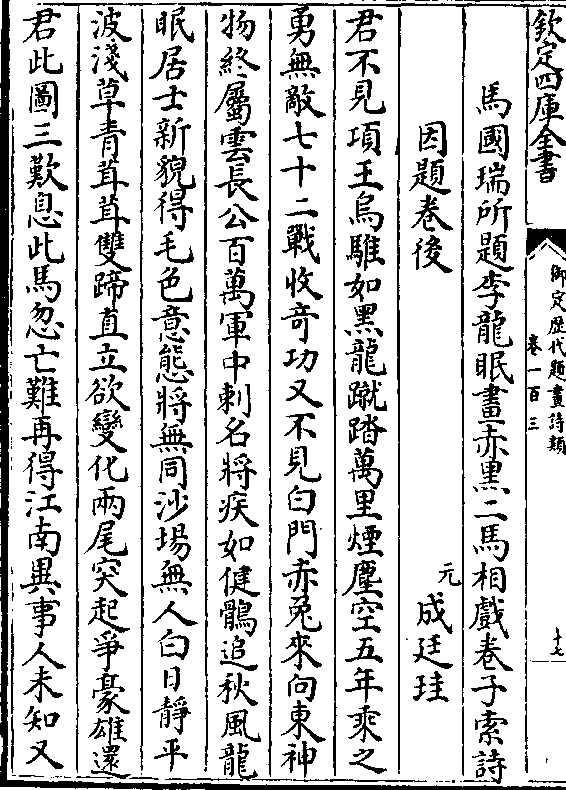 欽定四庫全書
御定歴代題畫詩類
卷一百三
十七
馬國瑞所題李龍眠畫赤黑二馬相戲卷子索詩
因題卷後
元
成廷珪
君不見項王烏騅如黑龍蹴踏萬里煙塵空五年乘之
勇無敵七十二戰收竒功又不見白門赤兎來向東神
物終屬雲長公百萬軍中刺名將疾如健鶻追秋風龍
眠居士新貌得毛色意態將無同沙場無人白日靜平
波淺草青茸茸雙蹄直立欲變化兩尾突起爭豪雄還
君此圖三歎息此馬忽亡難再得江南異事人未知又